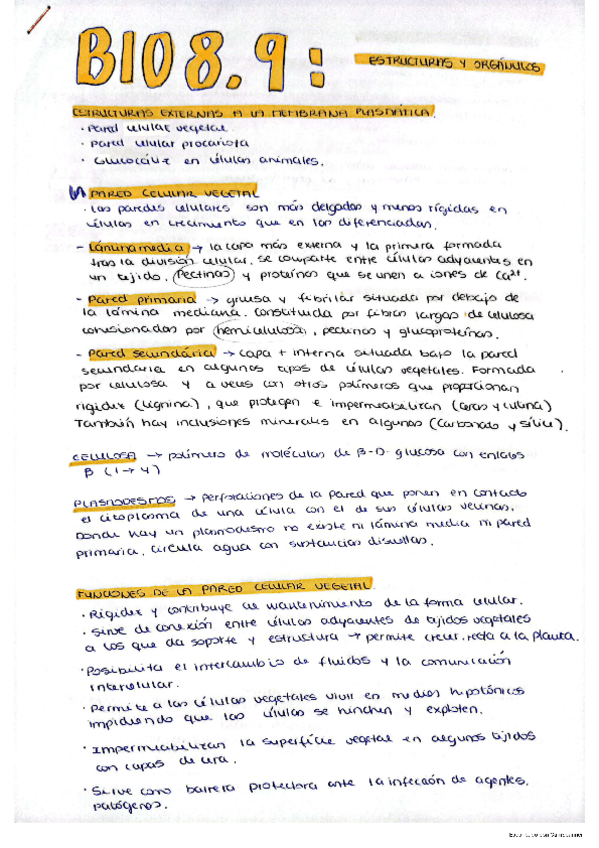 BIO 8.9:
ESTRUCTURAS Y ORGÁNULOS
ESTRUCTURAS EXTERNAS A LA MEMBRANA PLASMÁTICA.
· Pared celular vegetal.
· Pared celular procariota
· Glucocálix en células animales.
PARED CELULAR VEGETAL
· Las paredes celulares son más delgadas y menos rígidas en
células en crecimiento que en las diferenciadas.
- Lámina media → la capa más externa y la primera formada
tras la división celular, se comparte entre células adyacentes en
un tejido. Pectinas y proteínas que se unen a iones de Ca²⁺.
- Pared primaria → gruesa y fibrilar situada por debajo de
la lámina mediana. Constituida por fibras largas de celulosa
cohesionadas por hemicelulosa, pectinas y glucoproteínas.
- Pared secundária → capa + interna situada bajo la pared
secundaria en algunos tipos de células vegetales. Formada
por celulosa y a veces con otros polímeros que proporcionan
rigidez (lignina), que protegen e impermeabilizan (ceras y cutina)
También hay inclusiones minerales en algunos (carbonato y sílice).
CELULOSA → polímero de moléculas de β-D-glucosa con enlaces
β (1→4)
PLASMODESMOS → perforaciones de la pared que ponen en contacto
el citoplasma de una célula con el de sus células vecinas.
Donde hay un plasmodesmo no existe ni lámina media ni pared
primaria. Circula agua con sustancias disueltas.
FUNCIONES DE LA PARED CELULAR VEGETAL
· Rigidez y contribuye al mantenimiento de la forma celular.
· Sirve de conexión entre células adyacentes de tejidos vegetales
a los que da soporte y estructura → permite crecer recta a la planta.
· Posibilita el intercambio de fluidos y la comunicación
intercelular.
· Permite a las células vegetales vivir en medios hipotónicos
impidiendo que las células se hinchen y exploten.
· Impermeabilizan la superficie vegetal en algunos tejidos
con capas de cera.
· Sirve como barrera protectora ante la infección de agentes
patógenos.